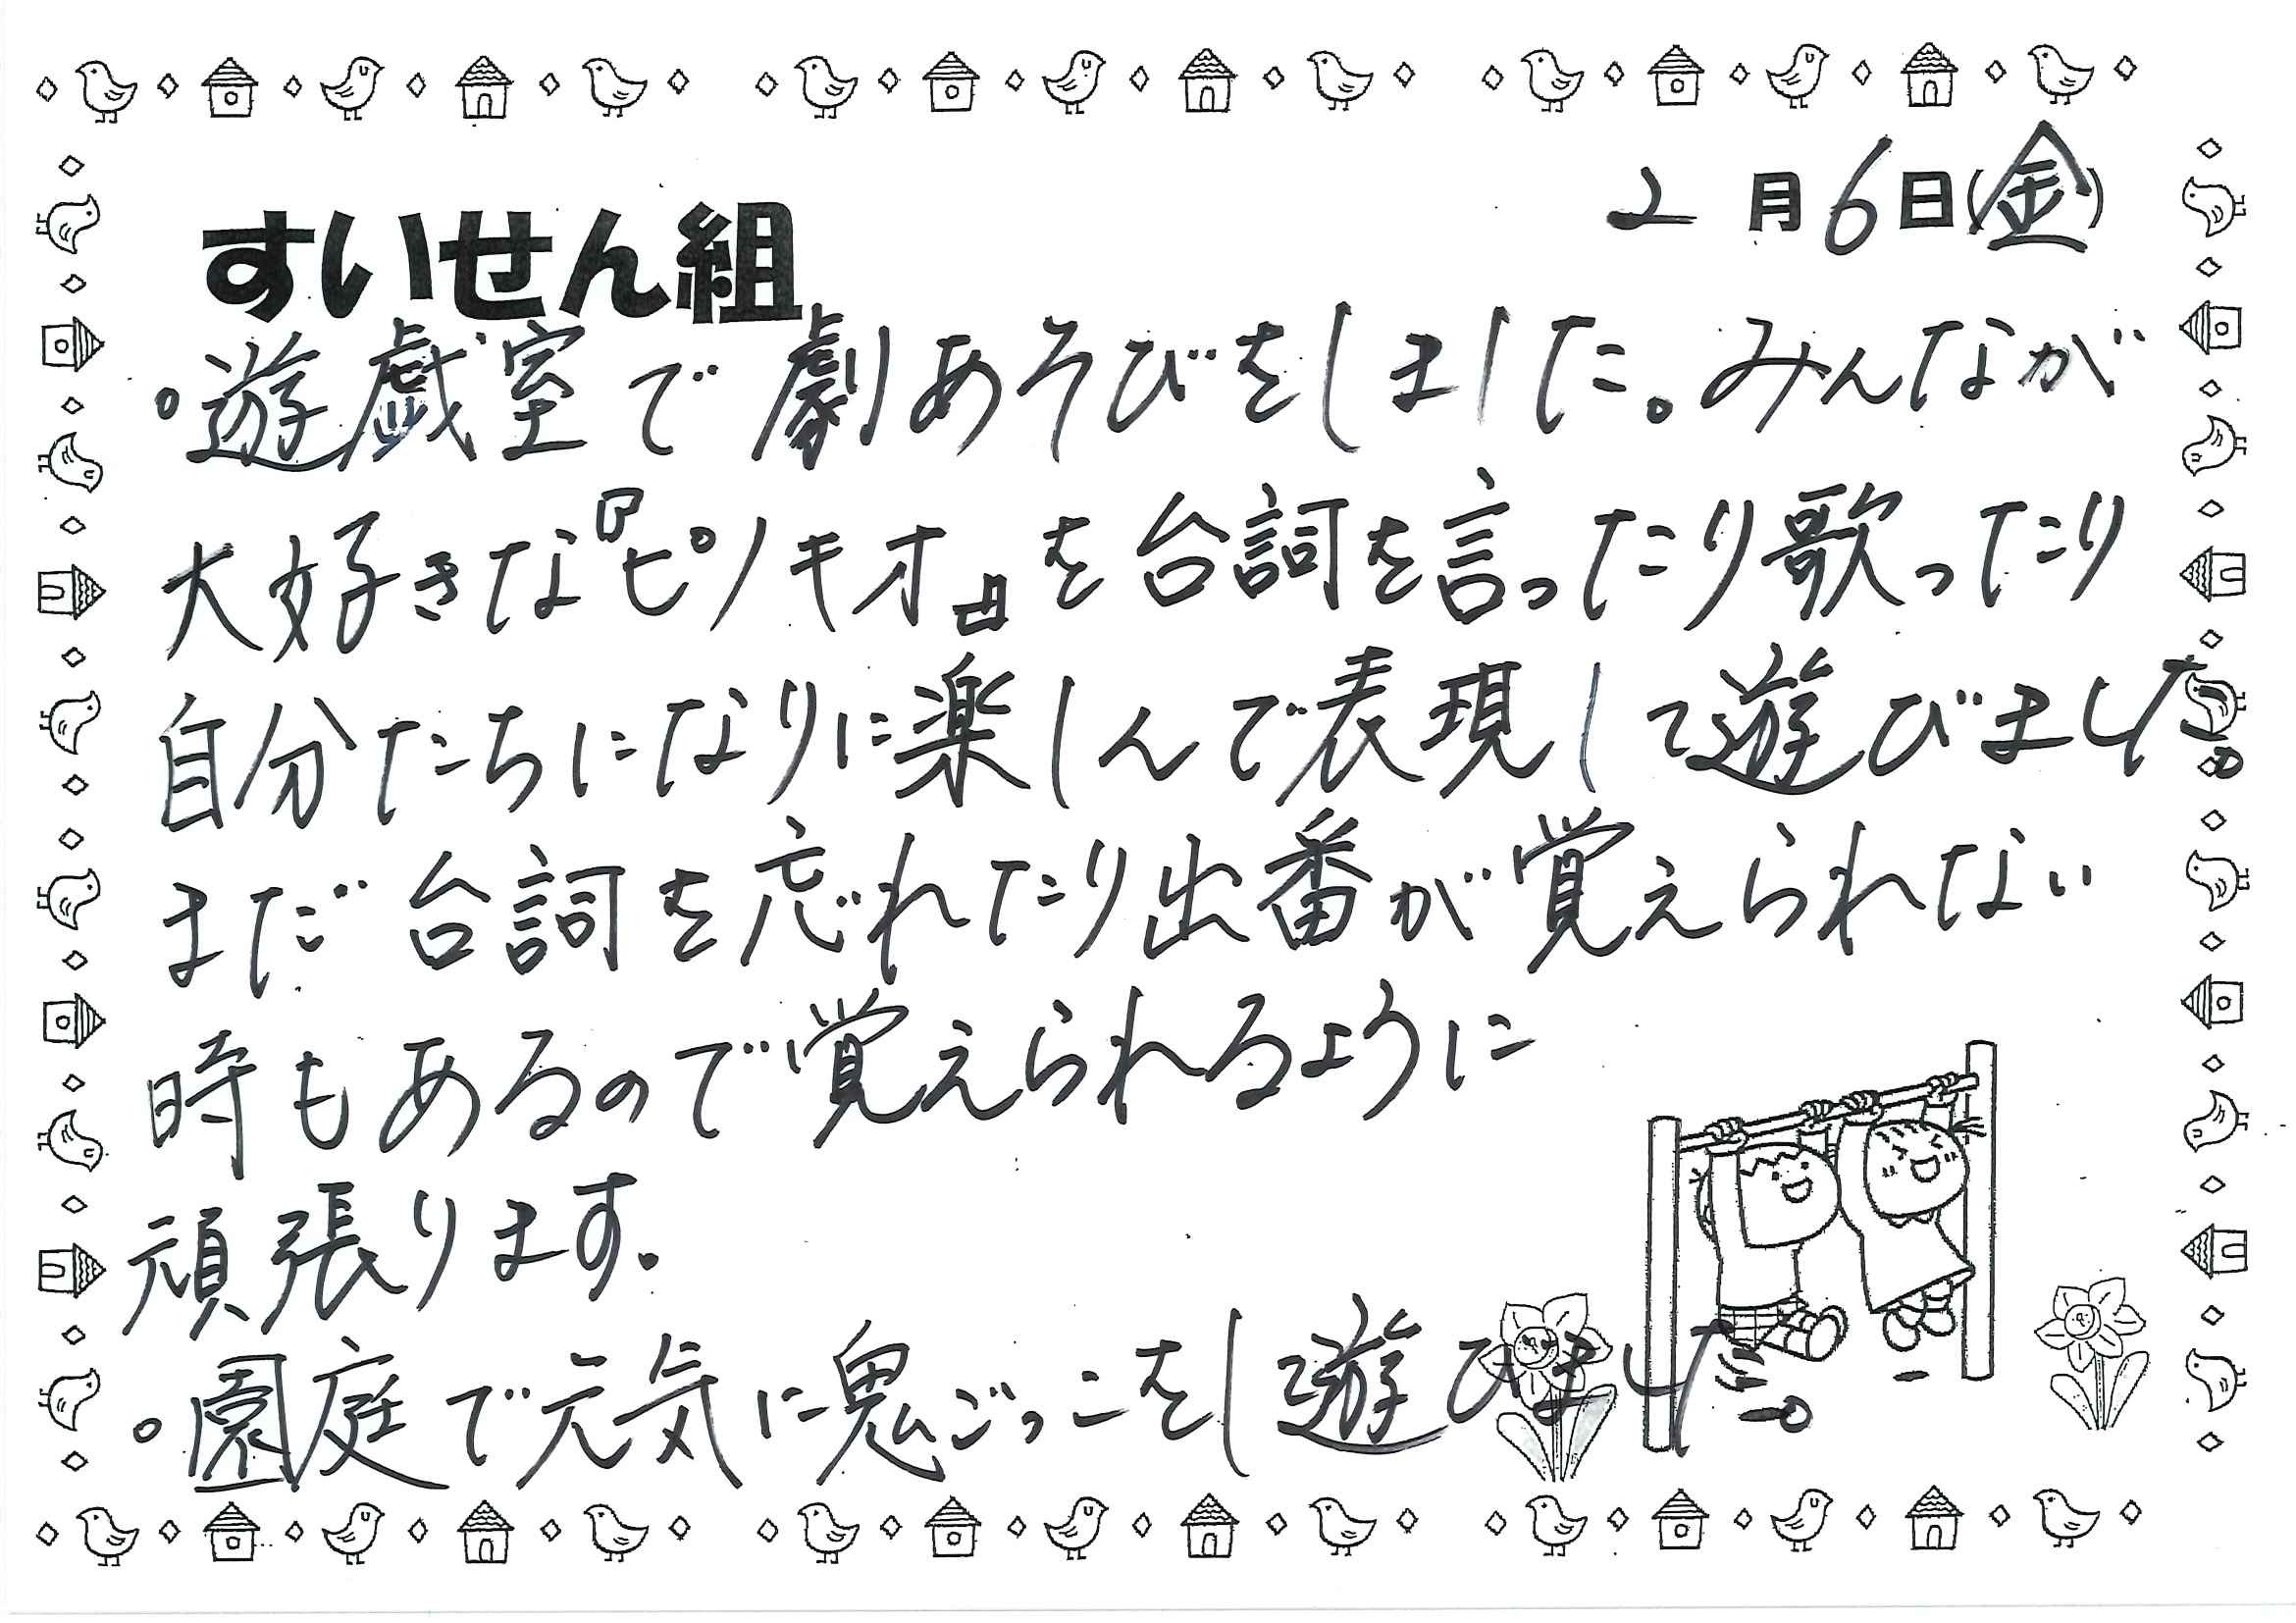 2月6日(金)
すいせん組
。遊戯室で劇あそびをしました。みんなが
大好きな『ピノキオ』を台詞を言ったり歌ったり
自分たちになりに楽しんで表現して遊びました。
まだ台詞を忘れたり出番が覚えられない
時もあるので覚えられるように
頑張ります。
。園庭で元気に鬼ごっこをし遊びました。